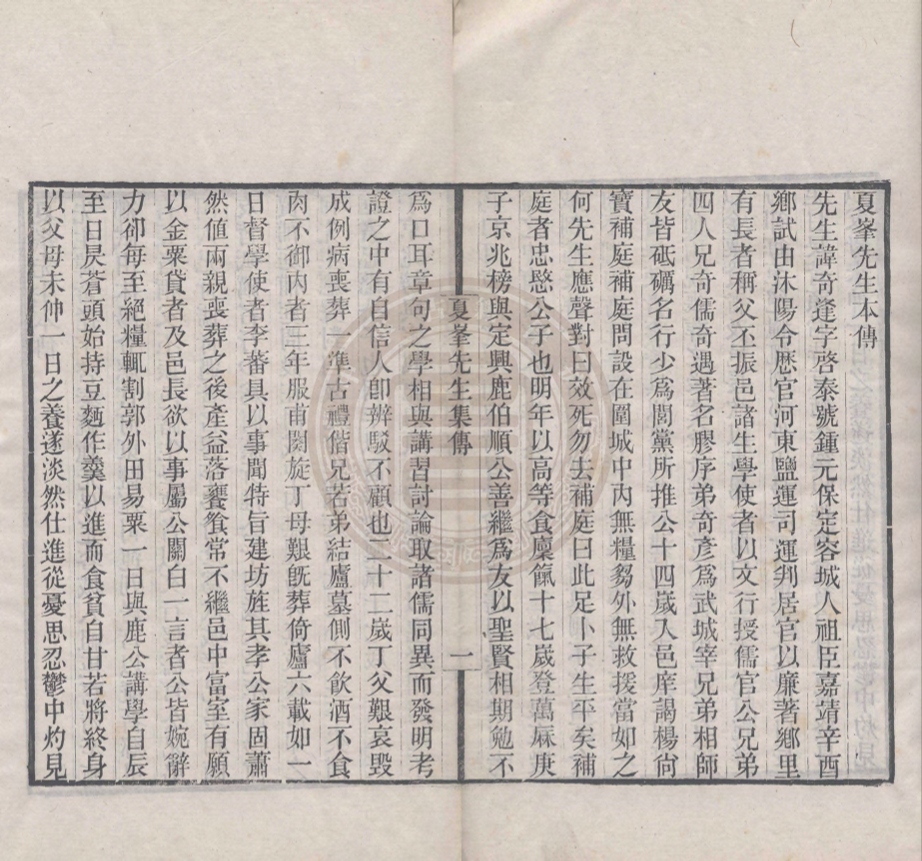 夏峯先生本傳
先生諱奇逢字啓泰號鍾元保定容城人祖臣嘉靖辛酉
鄉試由沭陽令歷官河東鹽運司運判居官以廉著鄉里
有長者稱父丕振邑諸生學使者以文行授儒官公兄弟
四人兄奇儒奇遇著名膠序弟奇彥爲武城宰兄弟相師
友皆砥礪名行少爲閭黨所推公十四歲入邑庠謁楊尙
寶補庭補庭問設在圍城中內無糧芻外無救援當如之
何先生應聲對曰效死勿去補庭曰此足卜子生平矣補
庭者忠愍公子也明年以高等食廩餼十七歲登萬厤庚
子京兆榜與定興鹿伯順公善繼爲友以聖賢相期勉不
夏峯先生集傳
一
爲口耳章句之學相與講習討論取諸儒同異而發明考
證之中有自信人卽辨駁不顧也二十二歲丁父艱哀毀
成例病喪葬一準古禮偕兄若弟結廬墓側不飮酒不食
肉不御內者三年服甫闋旋丁母艱旣葬倚廬六載如一
日督學使者李蕃具以事聞特旨建坊旌其孝公家固蕭
然値兩親喪葬之後產益落饔飧常不繼邑中富室有願
以金粟貸者及邑長欲以事屬公關白一言者公皆婉辭
力卻每至絕糧輒割郭外田易粟一日與鹿公講學自辰
至日昃蒼頭始持豆麵作羹以進而食貧自甘若將終身
以父母未伸一日之養遂淡然仕進從憂思忍鬱中灼見